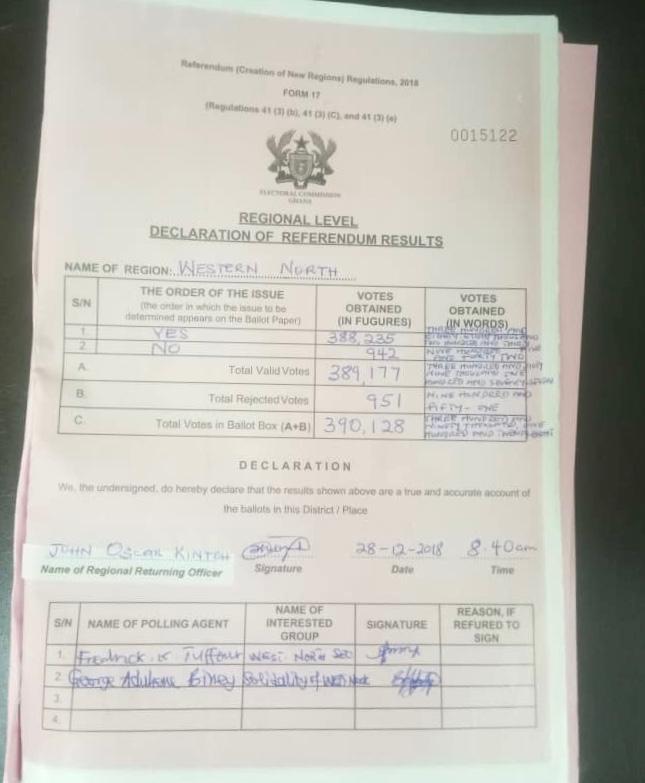 Referendum (Creation of New Regions) Regulations, 2018
FORM 17
(Regulations 41 (3) (b), 41 (3) (C), and 41 (3) (e)
0015122
ELECTORAL COMMISSION
GHANA
REGIONAL LEVEL
DECLARATION OF REFERENDUM RESULTS
NAME OF REGION: WESTERN NORTH
S/N THE ORDER OF THE ISSUE (the order in which the issue to be determined appears on the Ballot Paper) VOTES OBTAINED (IN FUGURES) VOTES OBTAINED (IN WORDS)
1. YES 388,235 THREE HUNDRED AND EIGHTY EIGHT THOUSAND TWO HUNDRED AND THIRTY FIVE
2. NO 942 NINE HUNDRED AND FORTY TWO
A. Total Valid Votes 389,177 THREE HUNDRED AND EIGHTY NINE THOUSAND ONE HUNDRED AND SEVENTY SEVEN
B. Total Rejected Votes 951 NINE HUNDRED AND FIFTY-ONE
C. Total Votes in Ballot Box (A+B) 390,128 THREE HUNDRED AND NINETY THOUSAND, ONE HUNDRED AND TWENTY EIGHT
DECLARATION
We, the undersigned, do hereby declare that the results shown above are a true and accurate account of
the ballots in this District / Place
JOHN OSCAR KINTOH 28-12-2018 8.40am
Name of Regional Returning Officer Signature Date Time
S/N NAME OF POLLING AGENT NAME OF INTERESTED GROUP SIGNATURE REASON, IF REFURED TO SIGN
1. Fredrick K Tuffour West North
2. George Biney Solidality of West North
3.
4.